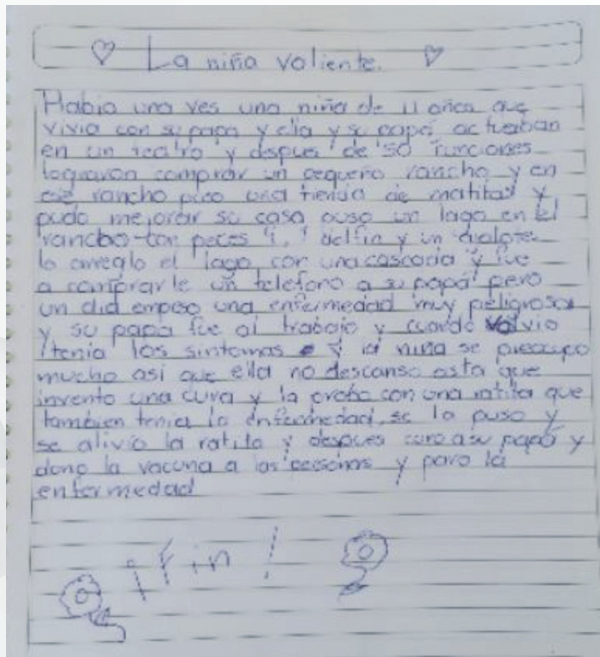 La niña valiente.
Habia una ves una niña de 11 años que
vivia con su papa y ella y su papá actuaban
en un teatro y despues de 50 funciones
lograron comprar un pequeño rancho y en
ese rancho puso una tienda de matitas y
pudo mejorar su casa puso un lago en el
rancho con peces 1 delfin y un
lo arreglo el lago con una cascada y fue
a comprarle un telefono a su papá pero
un dia empeso una enfermedad muy peligrosa
y su papa fue al trabajo y cuando volvio
tenia los sintomas y la niña se preocupo
mucho asi que ella no descanso asta que
invento una cura y la probo con una ratita que
tambien tenia la enfermedad, se la puso y
se alivio la ratita y despues curo a su papá y
dono la vacuna a las personas y paro la
enfermedad
¡Fin!